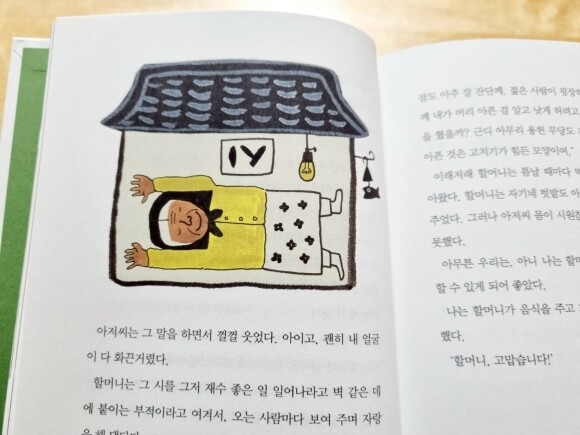 IY
아저씨는 그 말을 하면서 껄껄 웃었다. 아이고, 괜히 내 얼굴
이 다 화끈거렸다.
할머니는 그 시를 그저 재수 좋은 일 일어나라고 벽 같은 데
에 붙이는 부적이라고 여겨서, 오는 사람마다 보여 주며 자랑
잠도 아주 잘 잔단께. 젊은 사람이
께 내가 머리 아픈 걸 알고 낫게 하려고
을 했을까? 근디 아무리 용헌 무당도
아픈 것은 고치기가 힘든 모양이여."
이래저래 할머니는 틈날 때마다
아왔다. 할머니는 자기네 텃밭도
주었다. 그러나 아저씨 몸이
못했다.
아무튼 우리는, 아니 나는
할 수 있게 되어 좋았다.
나는 할머니가 음식을 주고
했다.
"할머니, 고맙습니다!"